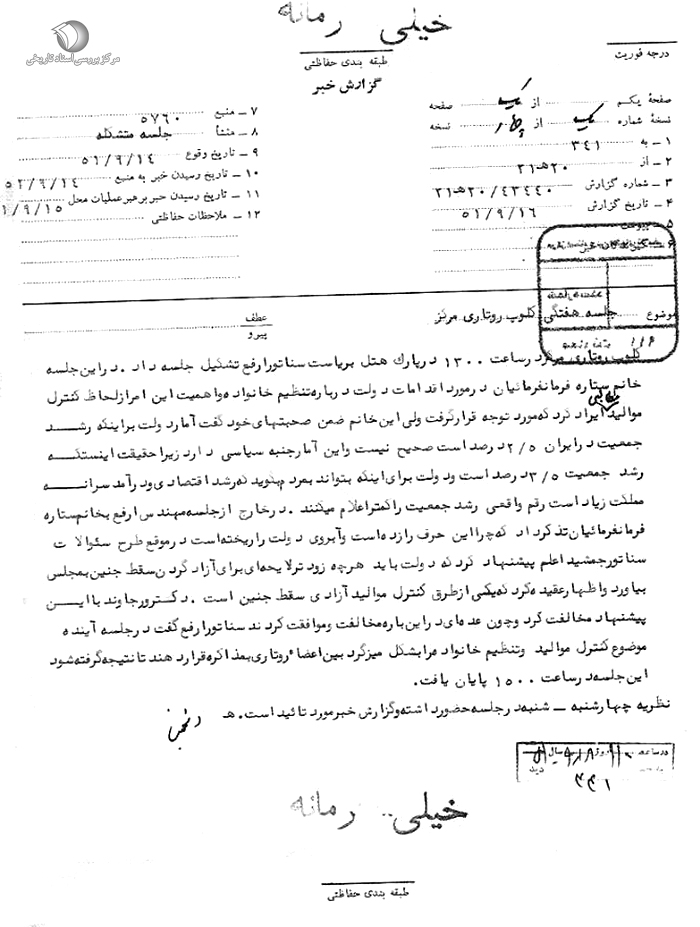 خیلی محرمانه
مرکز بررسی اسناد تاریخی
درجه فوریت
طبقه بندی حفاظتی
گزارش خبر
صفحهٔ یکم از یک صفحه
نسخهٔ شماره یک از چهار نسخه
۱ ـ به ۳۴۱
۲ ـ از ۲۰هـ۲۱
۳ ـ شماره گزارش ۲۰/۴۳۴۴۰هـ۲۱
۴ ـ تاریخ گزارش ۵۱/۹/۱۶
۵ ـ پیوست
۶ ـ گیرندگان خبر
۷ ـ منبع ۵۷۶۰
۸ ـ منشأ جلسه متشکله
۹ ـ تاریخ وقوع ۵۱/۹/۱۴
۱۰ ـ تاریخ رسیدن خبر به منبع ۵۱/۹/۱۴
۱۱ ـ تاریخ رسیدن خبر برهبر عملیات محل ۵۱/۹/۱۵
۱۲ ـ ملاحظات حفاظتی
موضوع جلسه هفتگی کلوپ روتاری مرکز
عطف
پیرو
کلوپ روتاری مرکز در ساعت ۱۳۰۰ در پارک هتل بریاست سناتور ارفع تشکیل جلسه داد . در این جلسه
خانم ستاره فرمانفرمائیان در مورد اقدامات دولت درباره تنظیم خانواده و اهمیت این امر از لحاظ کنترل
موالید ایراد کرد که مورد توجه قرار گرفت ولی این خانم ضمن صحبتهای خود گفت آمار دولت بر اینکه رشد
جمعیت در ایران ۲/۵ درصد است صحیح نیست و این آمار جنبه سیاسی دارد زیرا حقیقت اینستکه
رشد جمعیت ۳/۵ درصد است و دولت برای اینکه بتواند بمردم بگوید که رشد اقتصادی و درآمد سرانه
مملکت زیاد است رقم واقعی رشد جمعیت را کمتر اعلام میکنند . در خارج از جلسه مهندس ارفع بخانم ستاره
فرمانفرمائیان تذکر داد که چرا این حرف را زده است و آبروی دولت را ریخته است در موقع طرح سئوالات
سناتور جمشید اعلم پیشنهاد کرد که دولت باید هرچه زودتر لایحه‌ای برای آزاد کردن سقط جنین بمجلس
بیاورد و اظهار عقیده کرد که یکی از طرق کنترل موالید آزادی سقط جنین است . دکتر ورجاوند با این
پیشنهاد مخالفت کرد و چون عده‌ای در این باره مخالفت و موافقت کردند سناتور ارفع گفت در جلسه آینده
موضوع کنترل موالید و تنظیم خانواده را بشکل میزگرد بین اعضاء روتاری بمذاکره قرار دهند تا نتیجه گرفته شود
این جلسه در ساعت ۱۵۰۰ پایان یافت.
نظریه چهارشنبه ـ شنبه در جلسه حضور داشته و گزارش خبر مورد تائید است. هـ
در ساعت روز سال
دید
۳۴۱
خیلی محرمانه
طبقه بندی حفاظتی